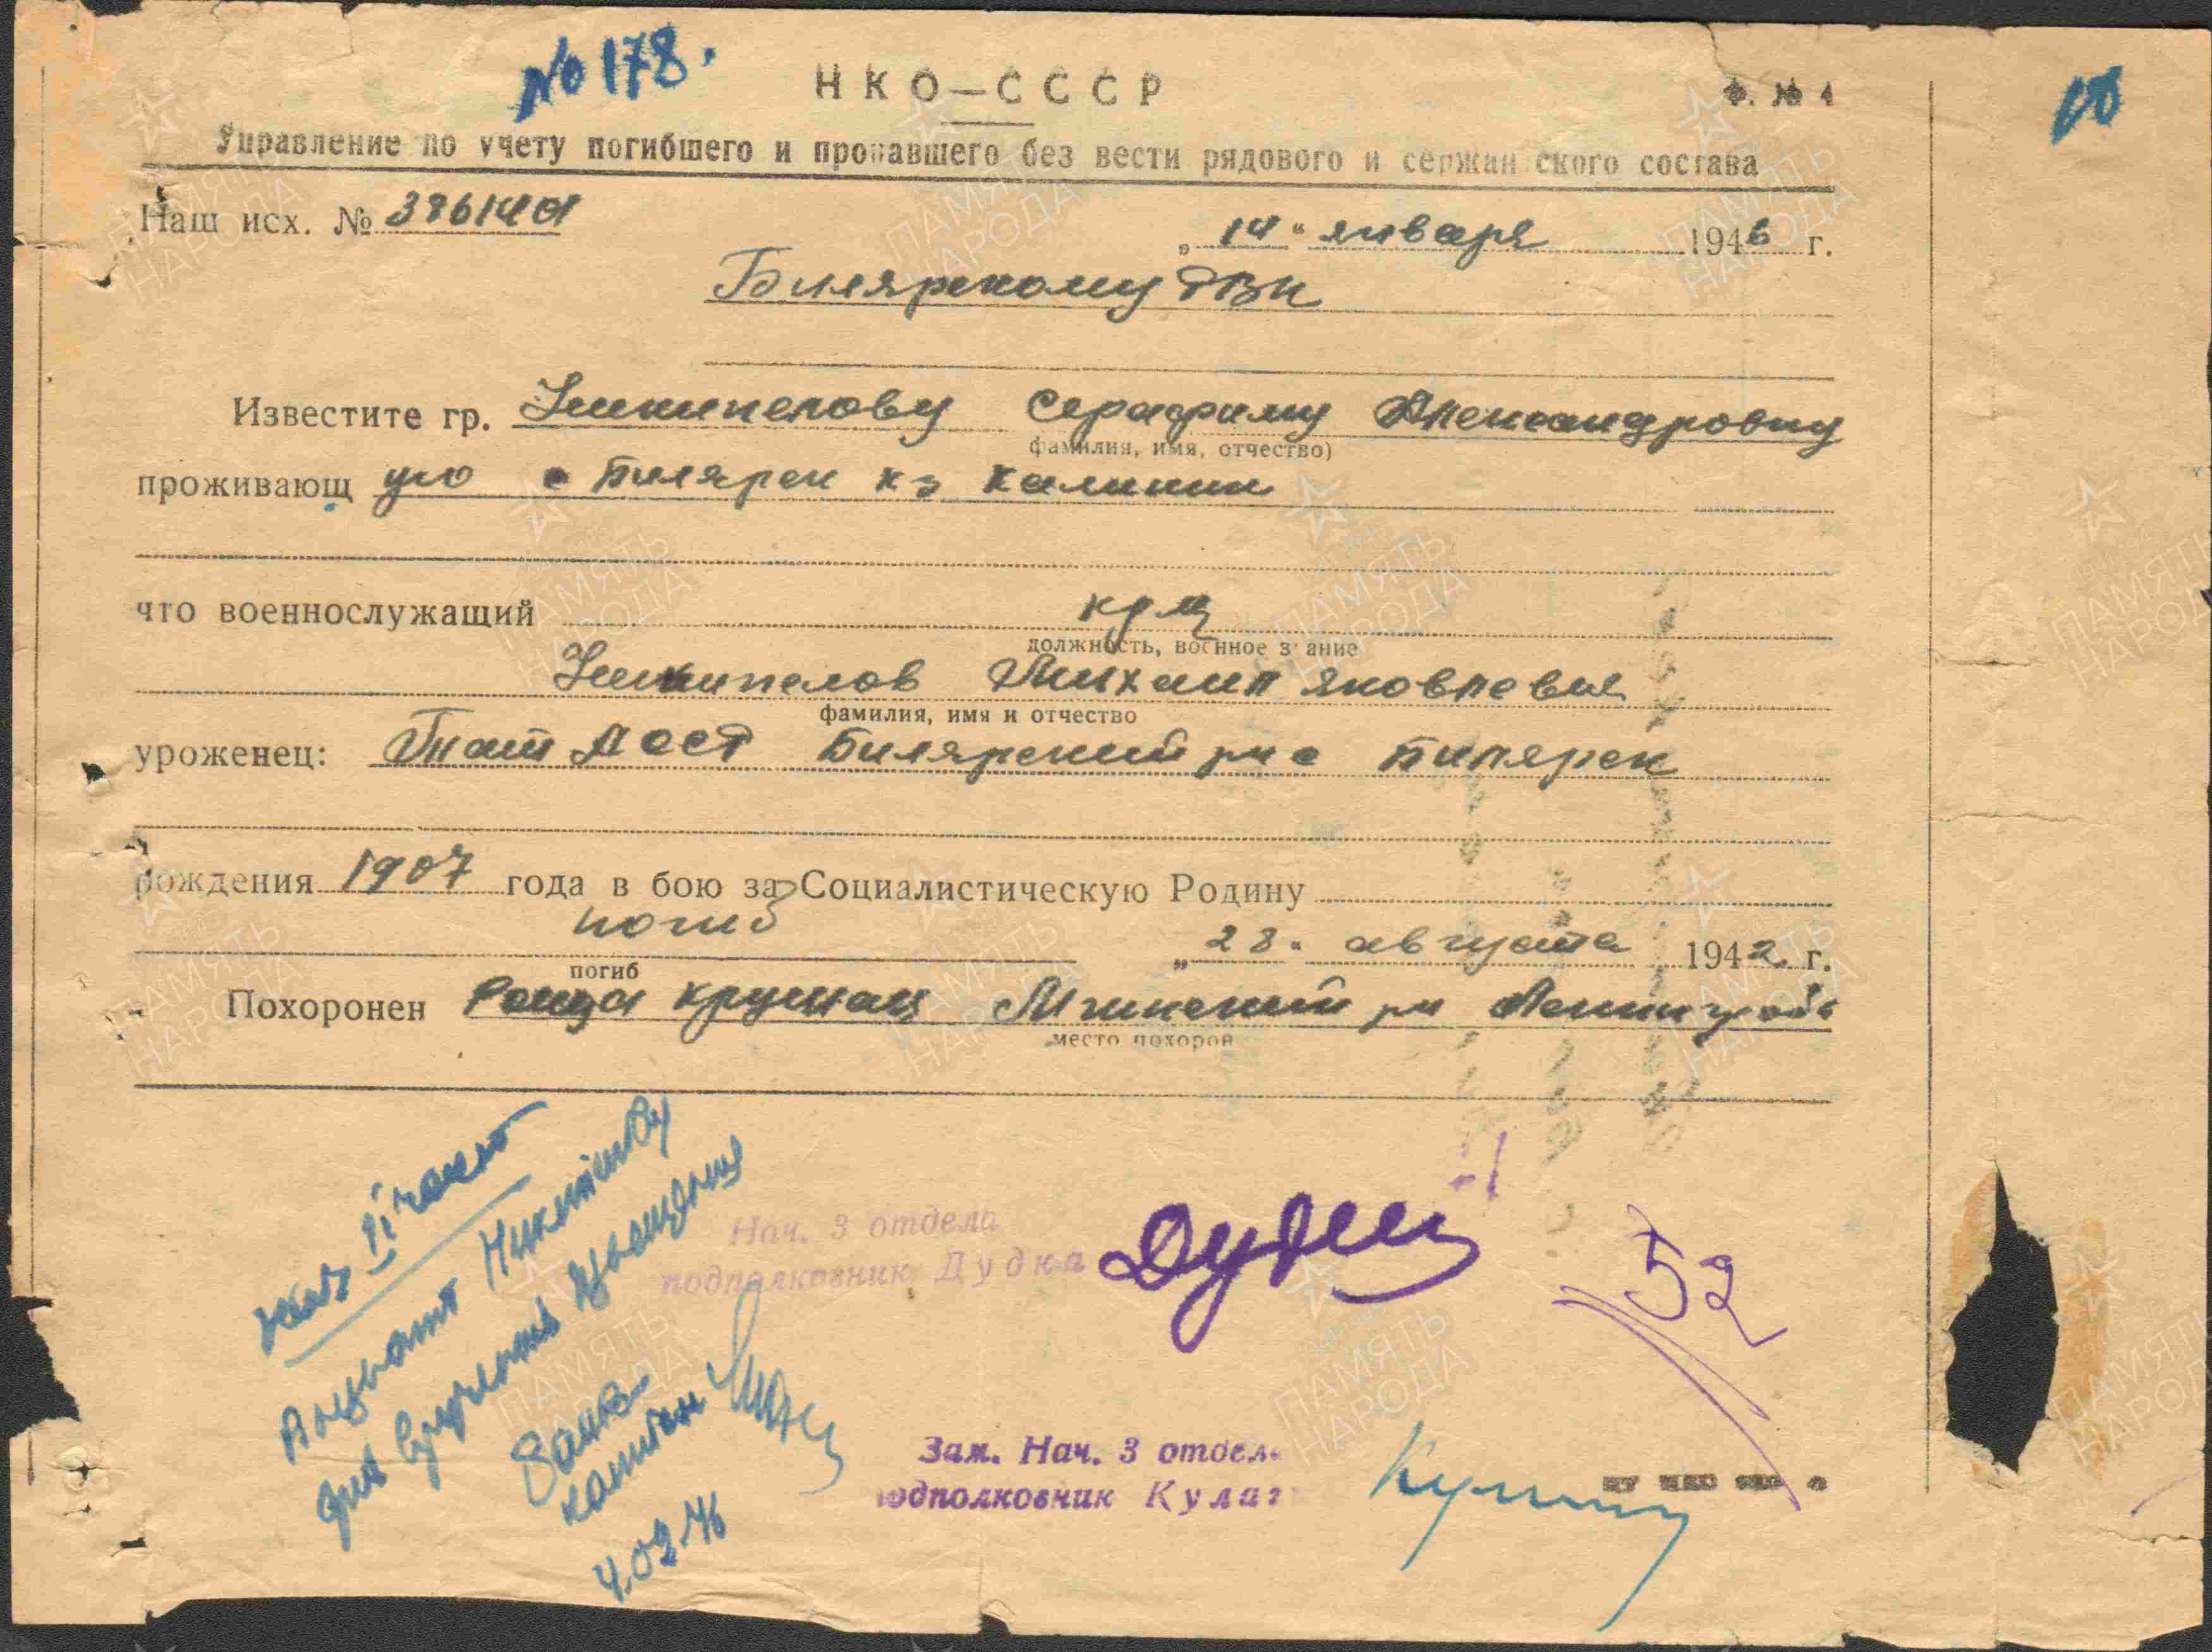 № 178.
НКО—СССР
Ф. № 4
Управление по учету погибшего и пропавшего без вести рядового и сержан ского состава
Наш исх. № 386140
„ 14 " января 1946 г.
Билярскому РВК
Известите гр. Серафиму Александровну
фамилия, имя, отчество)
проживающ ую с Билярск кз Калинин
что военнослужащий кр-ц
должность, военное з ание
Михаил Яковлевич
фамилия, имя и отчество
уроженец: Тат АССР Билярский р-н с Билярск
рождения 1907 года в бою за Социалистическую Родину
погиб „ 28 " августа 1942 г.
погиб
Похоронен Роща Круглая Мгинский р-н Ленингр обл
место похорон
Нач. 3 отдела
подполковник Дудка
52
Зам. Нач. 3 отдел
подполковник Кулаг
4.02.46
ПАМЯТЬ
НАРОДА